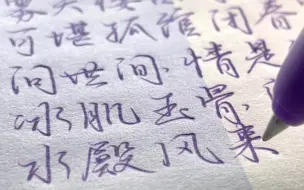 可堪孤馆闭春
问世间,情是
冰肌玉骨,
水殿风来